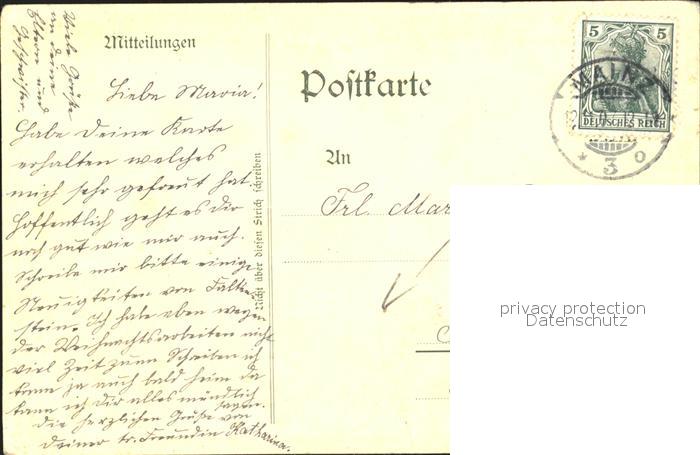 Viele Grüße
an deine
Eltern und
Geschwister.
Mitteilungen
Liebe Maria!
Habe Deine Karte
erhalten welches
mich sehr gefreut hat.
Hoffentlich geht es dir
noch gut wie mir auch.
Schreibe mir bitte einige
Neuigkeiten von Falken-
stein. Ich habe eben wegen
der Weihnachtsarbeiten nicht
viel Zeit zum Schreiben ich
komme ja auch bald heim da
kann ich Dir alles mündlich
sagen.
die herzlichen Grüße von
deiner tr. Freundin Katharina.
Nicht über diesen Strich schreiben
Postkarte
An
Frl. Mar
5 5
DEUTSCHES REICH
MAINZ
* 3 o
privacy protection
Datenschutz